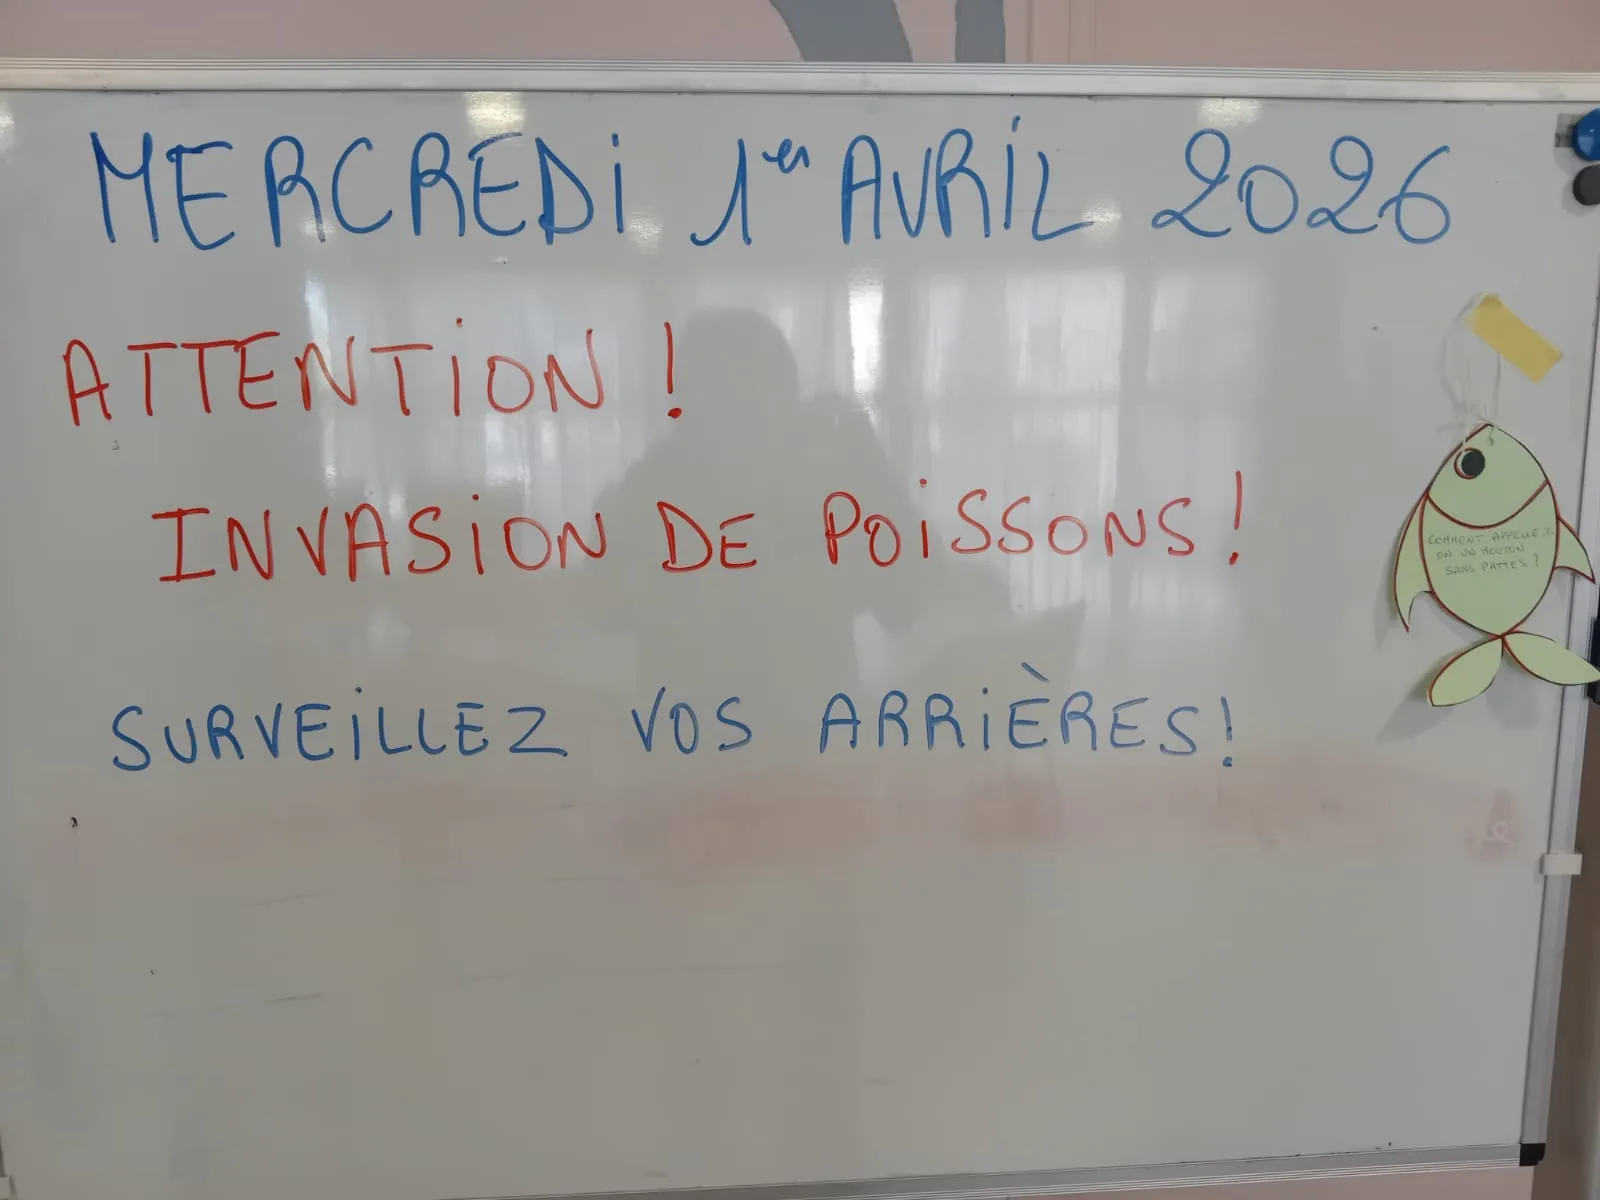 MERCREDI 1er AVRIL 2026
ATTENTION !
INVASION DE POISSONS !
SURVEILLEZ VOS ARRIÈRES !
COMMENT APPELLE-T-
ON UN MOUTON
SANS PATTES ?